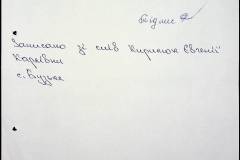 Записано зі слів Кирилюк Євгенії
Карпівни
с. Бузьке